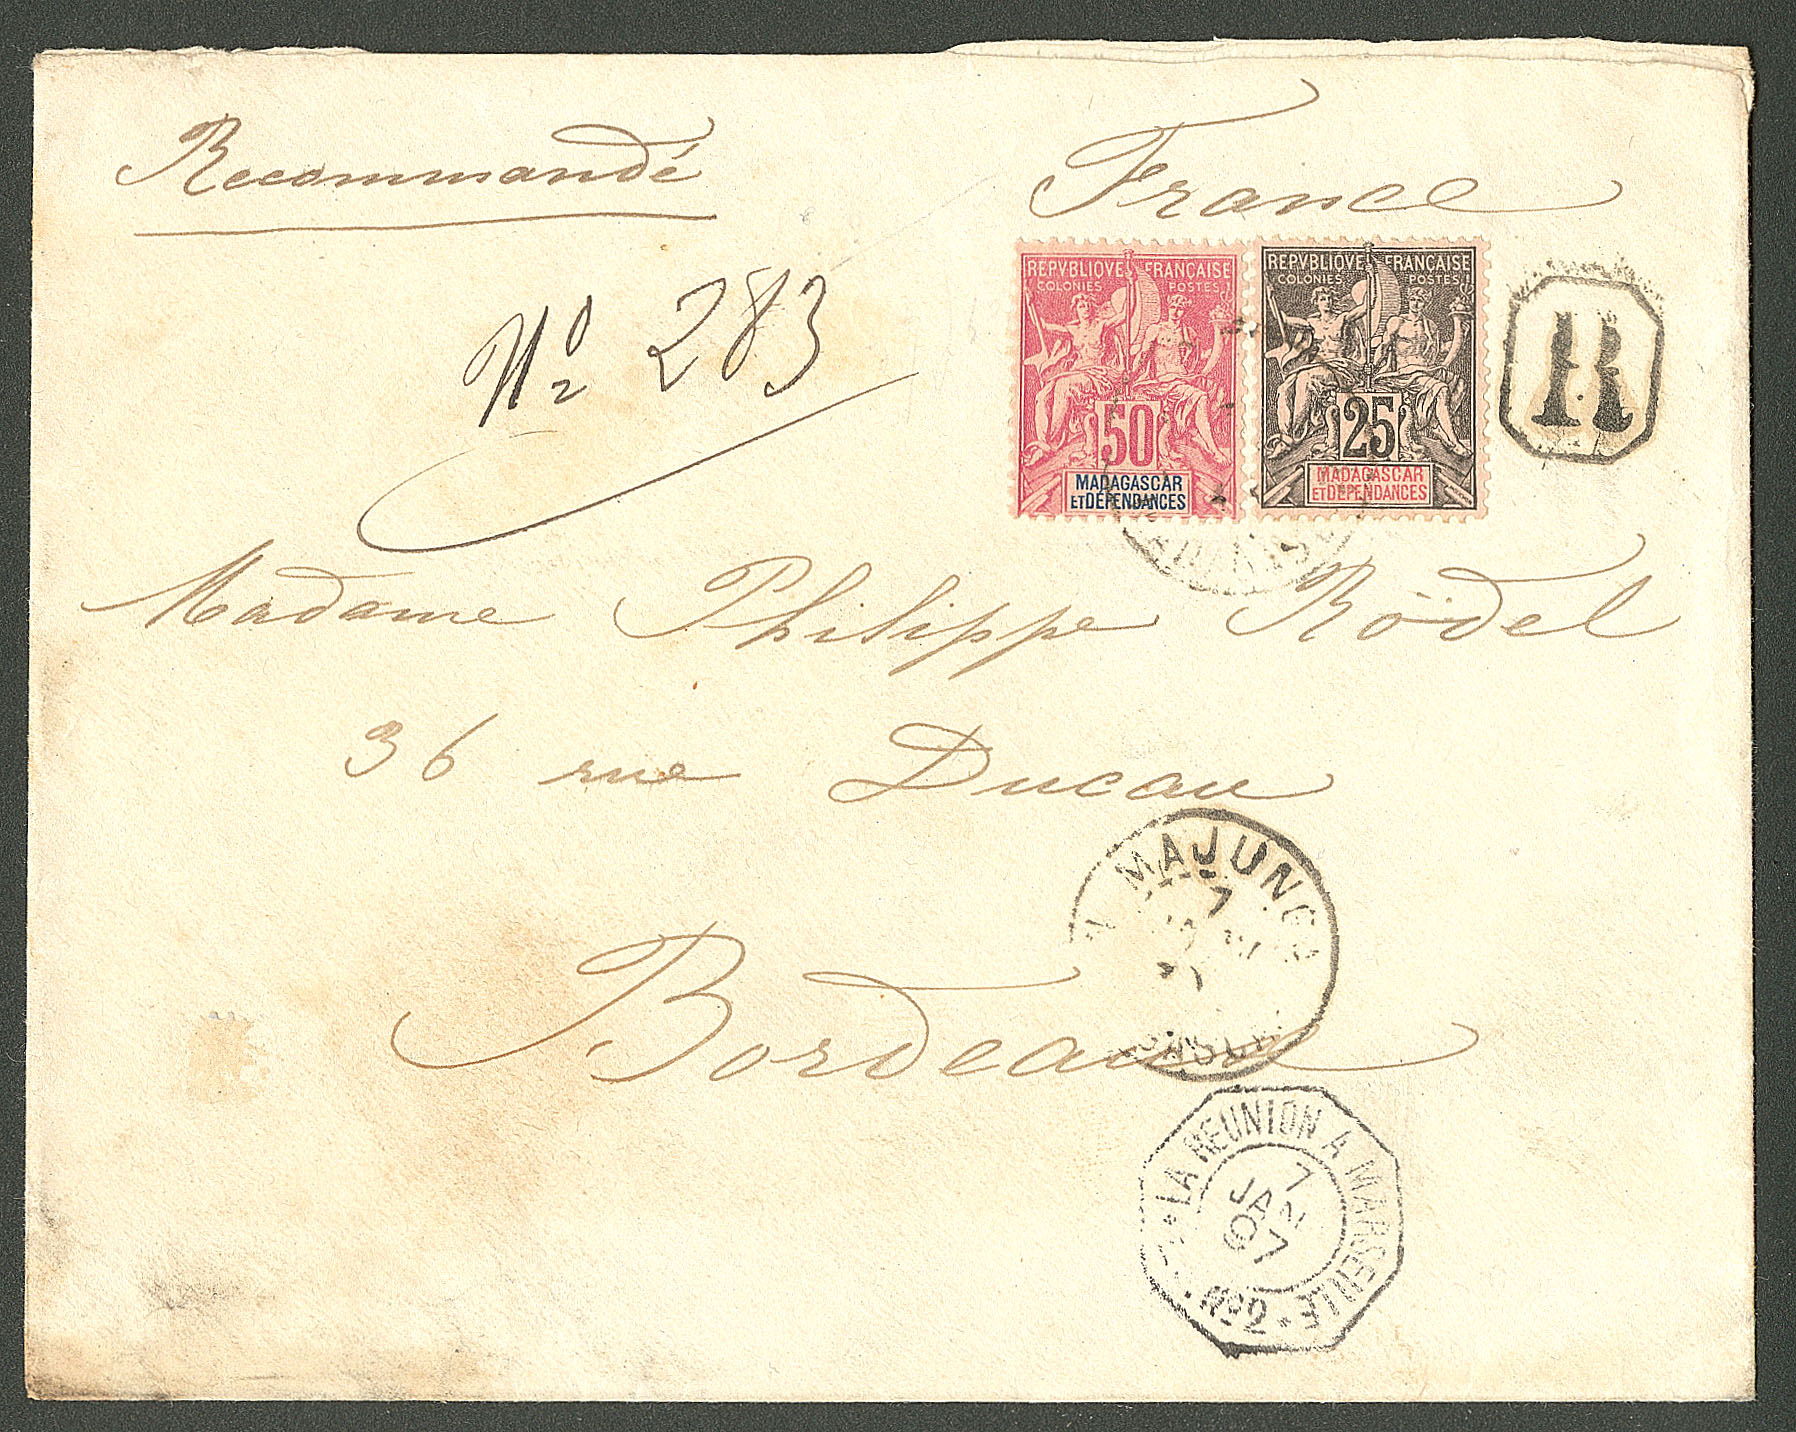 Recommandé
France
Nº 283
REPVBLIQVE FRANÇAISE
COLONIES POSTES
50
MADAGASCAR
ET DÉPENDANCES
REPVBLIQVE FRANÇAISE
COLONIES POSTES
25
MADAGASCAR
ET DÉPENDANCES
R
Madame Philippe Rödel
36 rue Ducau
Bordeaux
MAJUNGA
7
LA REUNION A MARSEILLE
7
JANV
97
Nº2